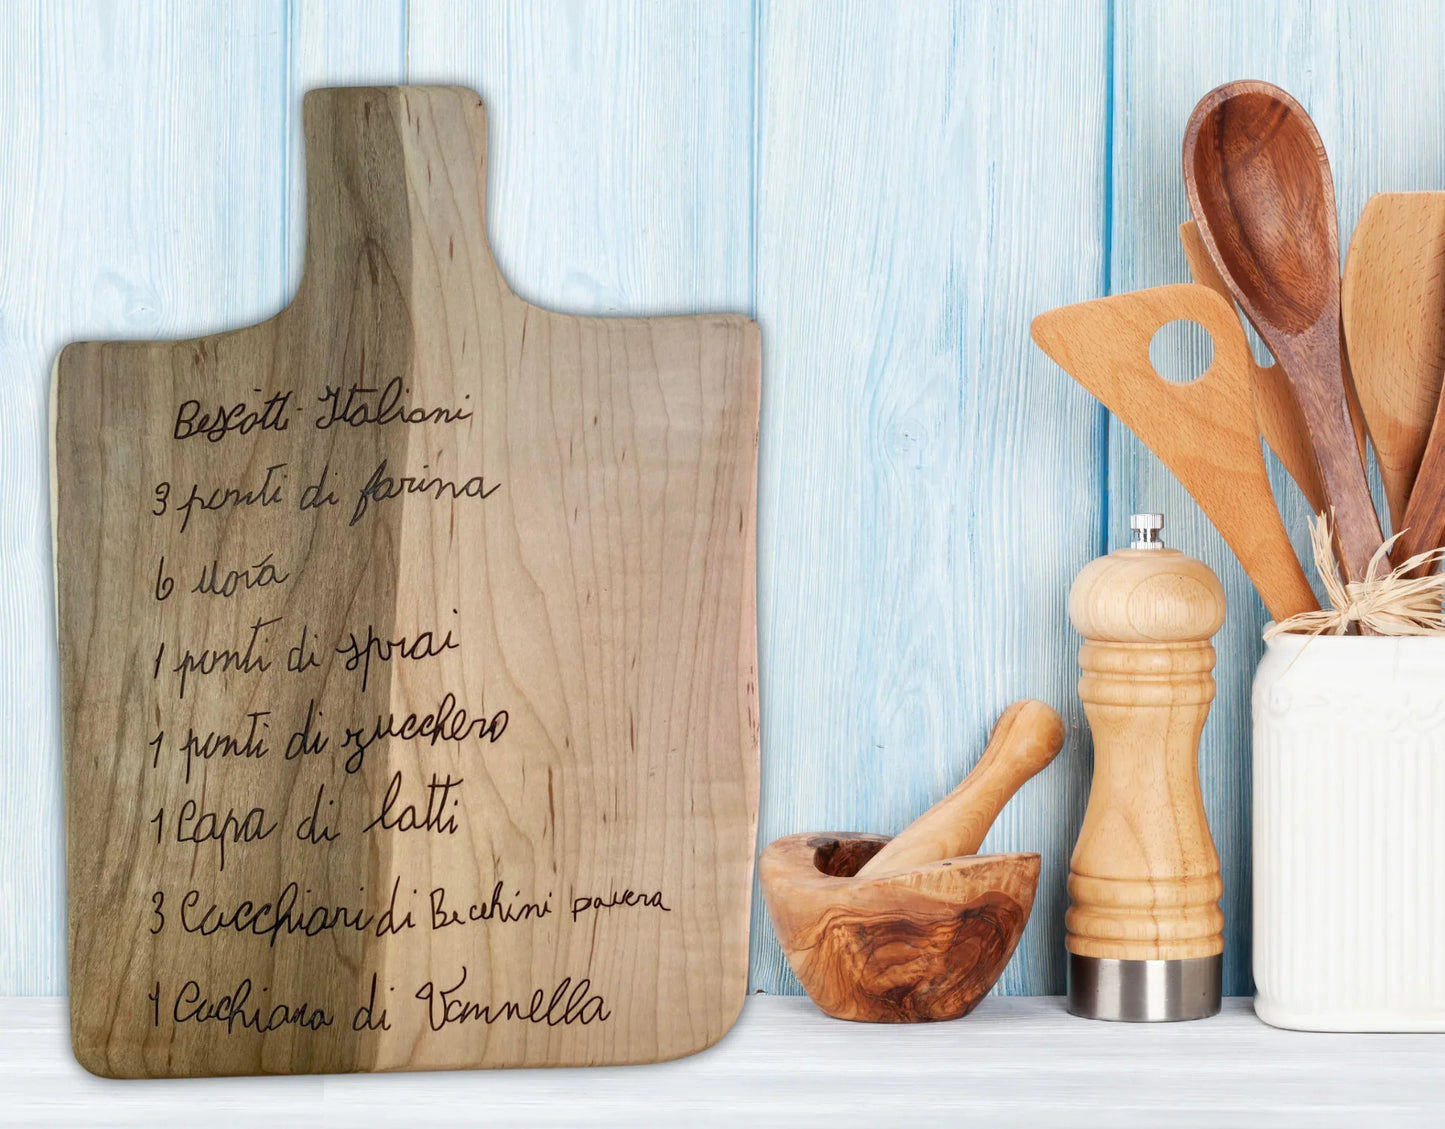 Bescotti Italiani
3 ponti di farina
6 uova
1 ponti di sprai
1 ponti di zucchero
1 Capa di latti
3 Cucchiari di Becchini pavera
1 Cuchiana di Vannella